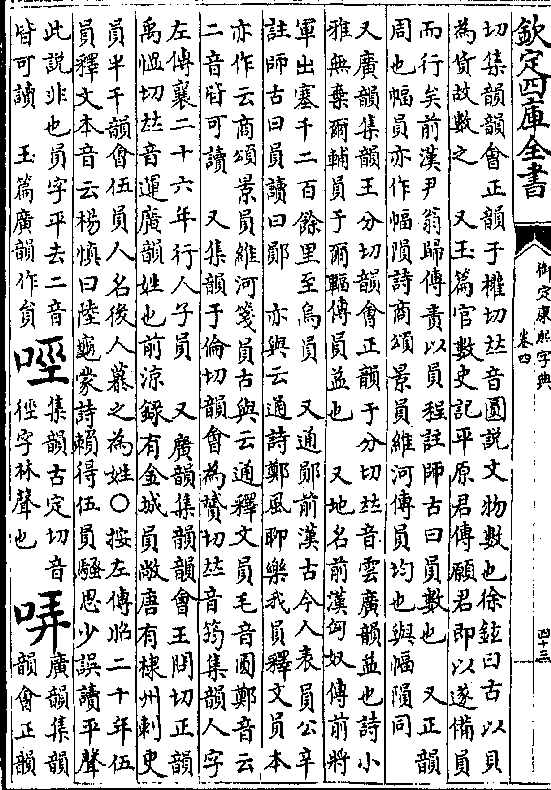 欽定四庫全書
御定康熙字典
卷四
四十三
切集韻韻會正韻于權切𠀤音圓說文物數也徐鉉曰古以貝
為貨故數之 又玉篇官數史記平原君傳願君即以遂備員
而行矣前漢尹翁歸傳責以員程註師古曰員數也 又正韻
周也幅員亦作幅隕詩商頌景員維河傳員均也與幅隕同
又廣韻集韻王分切韻會正韻于分切𠀤音雲廣韻益也詩小
雅無棄爾輔員于爾輻傳員益也 又地名前漢匈奴傳前將
軍出塞千二百餘里至烏員 又通鄖前漢古今人表員公辛
註師古曰員讀曰鄖 亦與云通詩鄭風聊樂我員釋文員本
亦作云商頌景員維河箋員古與云通釋文員毛音圓鄭音云
二音皆可讀 又集韻于倫切韻會為贇切𠀤音筠集韻人字
左傳襄二十六年行人子員 又廣韻集韻韻會王問切正韻
禹慍切𠀤音運廣韻姓也前涼錄有金城員敞唐有棣州刺史
員半千韻會伍員人名後人慕之為姓〇按左傳昭二十年伍
員釋文本音云楊慎曰陸龜蒙詩賴得伍員騷思少誤讀平聲
此說非也員字平去二音
皆可讀 玉篇廣韻作貟
集韻古定切音
徑字林聲也
哢
廣韻集韻
韻會正韻